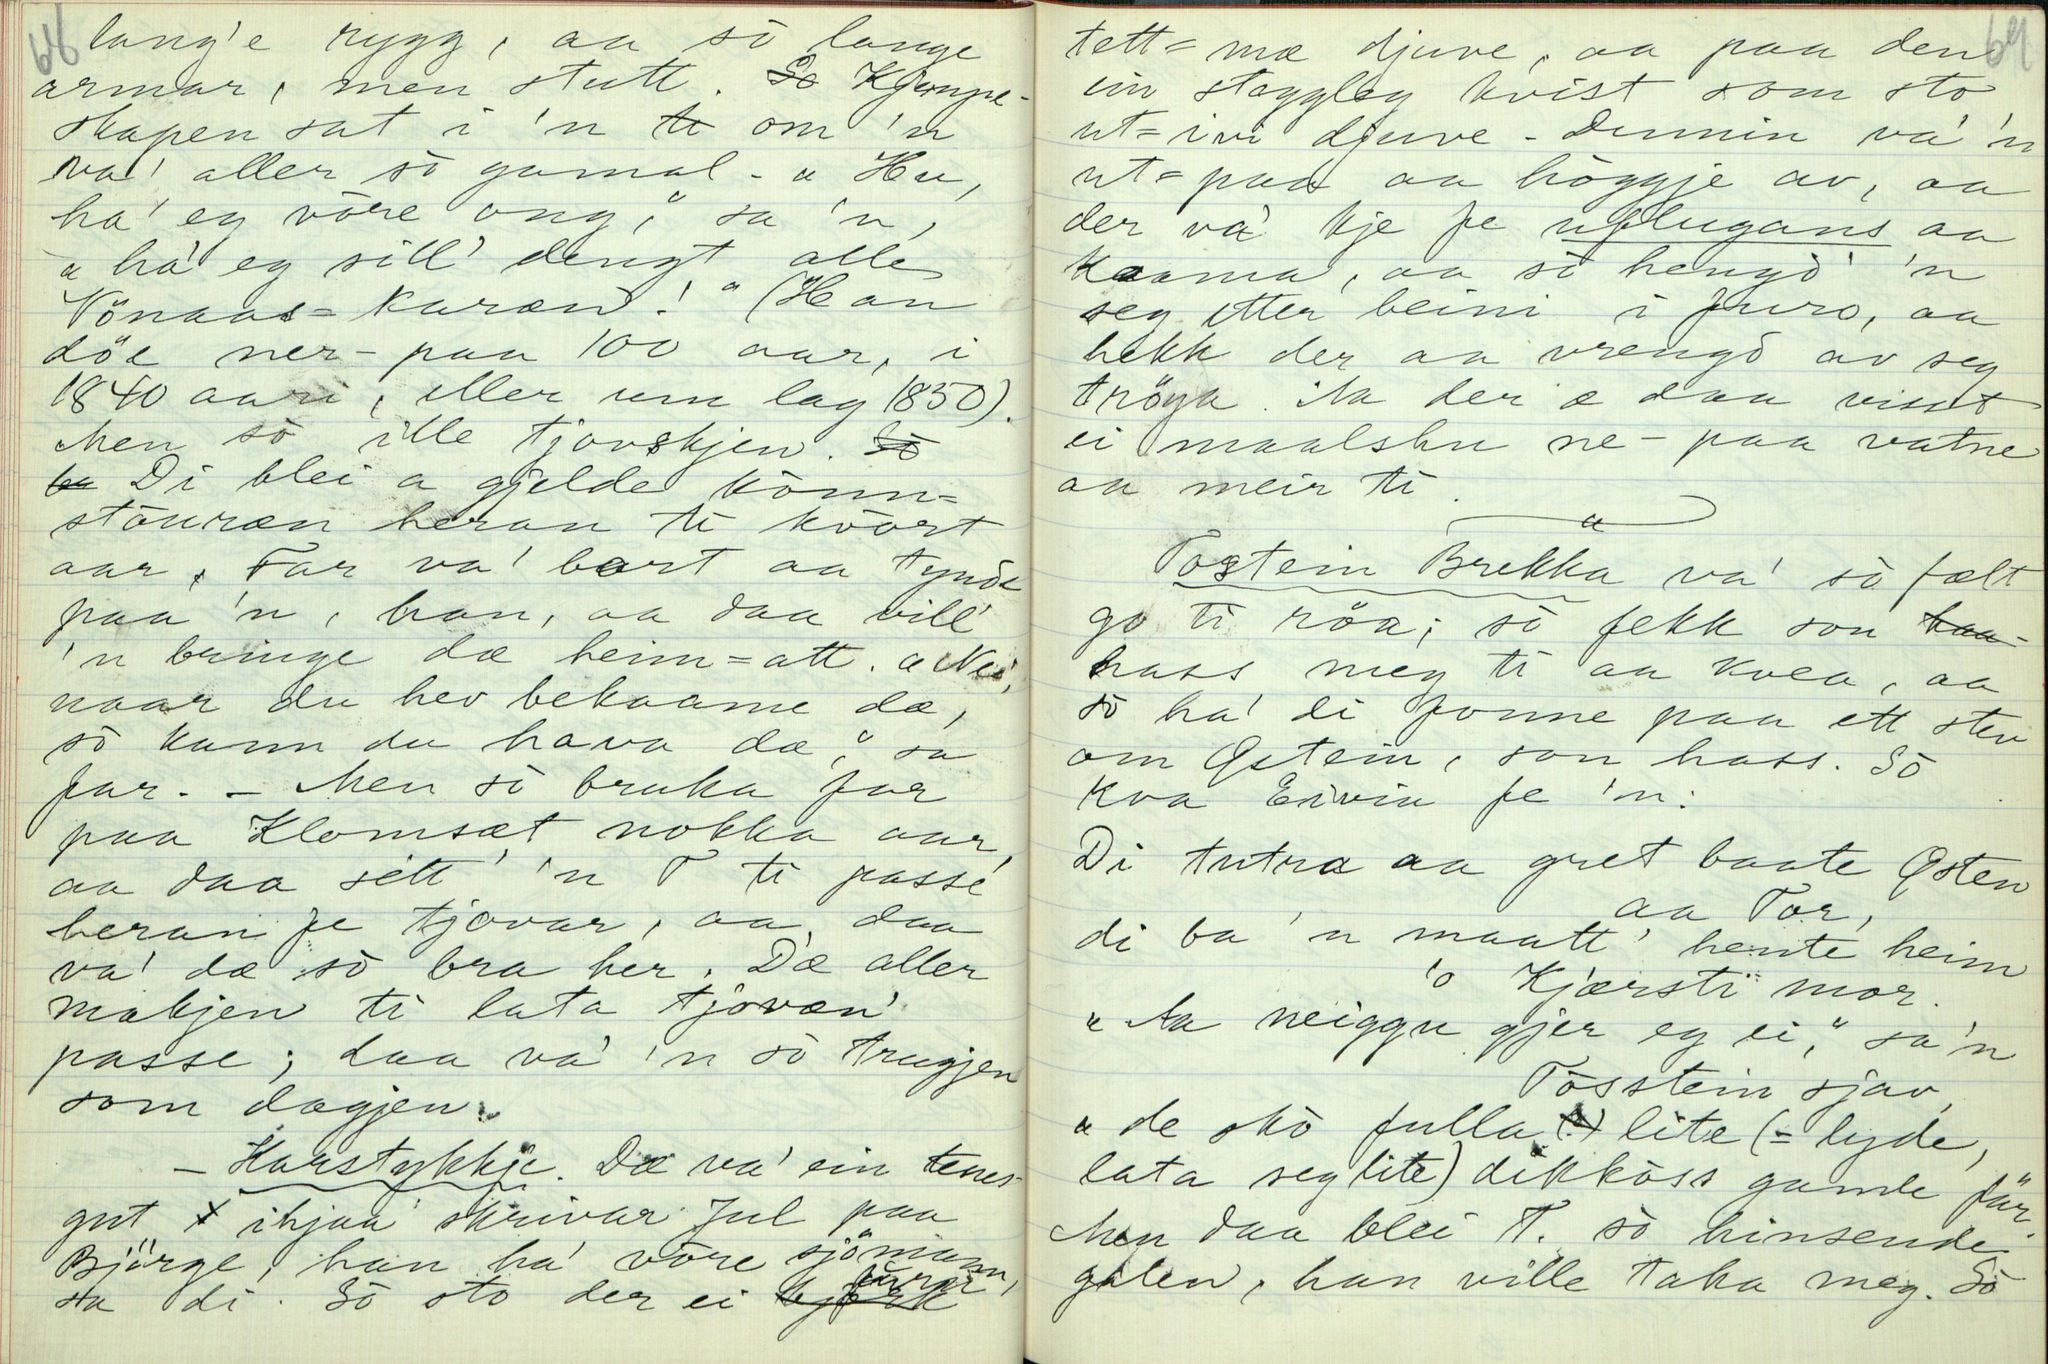 68
lang'e rygg, aa sò lange
armar, men stutt. So Kjempe-
skapen sat i 'n te om 'n
va' aller sò gamal - "Hu,
ha' eg vòre ong," sa 'n,
"ha' eg sill' dengt alle
Vönaas=karæn'!" (Han
döe ner-paa 100 aar, i
1840 aari, eller um lag 1850).
Men sò ille tjovskjen. Sò
ba Di blei a gjelde könn=
stòuræn heran ti kvort
aar. Far va' bort aa tynde
paa 'n, han, aa daa vill'
'n bringe dæ heim=att. "Nei,
naar du hev bekaame dæ,
sò kann du hava dæ," sa
far. - Men sò bruka far
paa Klomsæt nokka aar,
aa daa sett' 'n T ti passe
heran fe tjovar, aa daa
va' dæ sò bra her. D'æ aller
makjen ti lata tjovæn'
passe; daa va' 'n sò trugjen
som dagjen.
- Harstykkje. Dæ va' ein tenes-
gut x ihjaa skrivar Jul paa
Bjørge, han ha' vòre sjömann,
sa di. Sò sto der ei bjørk furu,
69
tett=mæ djuve, aa paa den
ein stoggleg kvist som sto
ut=ivi djuve - Dennin va' 'n
ut=paa aa höggje av, aa
der va' kje fe uflugans aa
kaama, aa sò hengd' 'n
seg etter beini i furo, aa
hekk der aa vrengd av seg
tröya. Aa der æ daa visst
ei maalsbu ne-paa vatne
aa meir ti.
Tosstein Brekka va' sò fælt
go ti röa; sò fekk son haa-
hass meg ti aa kvea, aa
sò ha' di fonne paa ett stev
om Østein, son hass. Sò
kva Eivin fe 'n:
Di tutra aa gret baate Østen
aa Tor,
di ba 'n maatt' hente heim
'o Kjærsti mor.
"Aa neiggu gjer eg ei," sa 'n
Tòsstein sjav,
"de skò fulla (?) lite (= lyde,
lata seg lite) dikkòss gamle far.
Men daa blei T. sò hinsende
galen, han ville taka meg. Sò